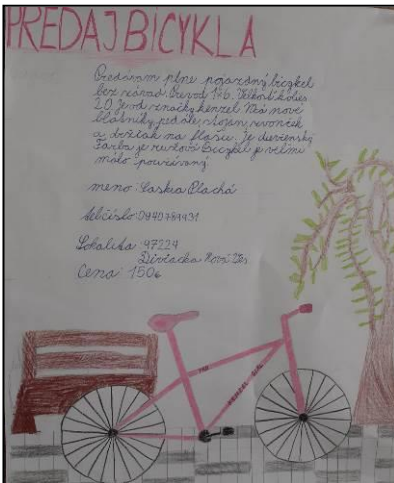 PREDAJ BICYKLA
Predávam plne pojazdný bicykel
bez závad. Prevod 1x6. Veľkosť kolies
20. Je od značky kenzel. Má nové
blatníky, pedále, stojan, zvonček
a držiak na fľašu. Je dievčenský
Farba je ružová. Bicykel je veľmi
málo používaný.
meno: Saskia Plachá
tel. číslo:
Lokalita: 97224
Diviacka Nová Ves
Cena: 150€
KENZEL